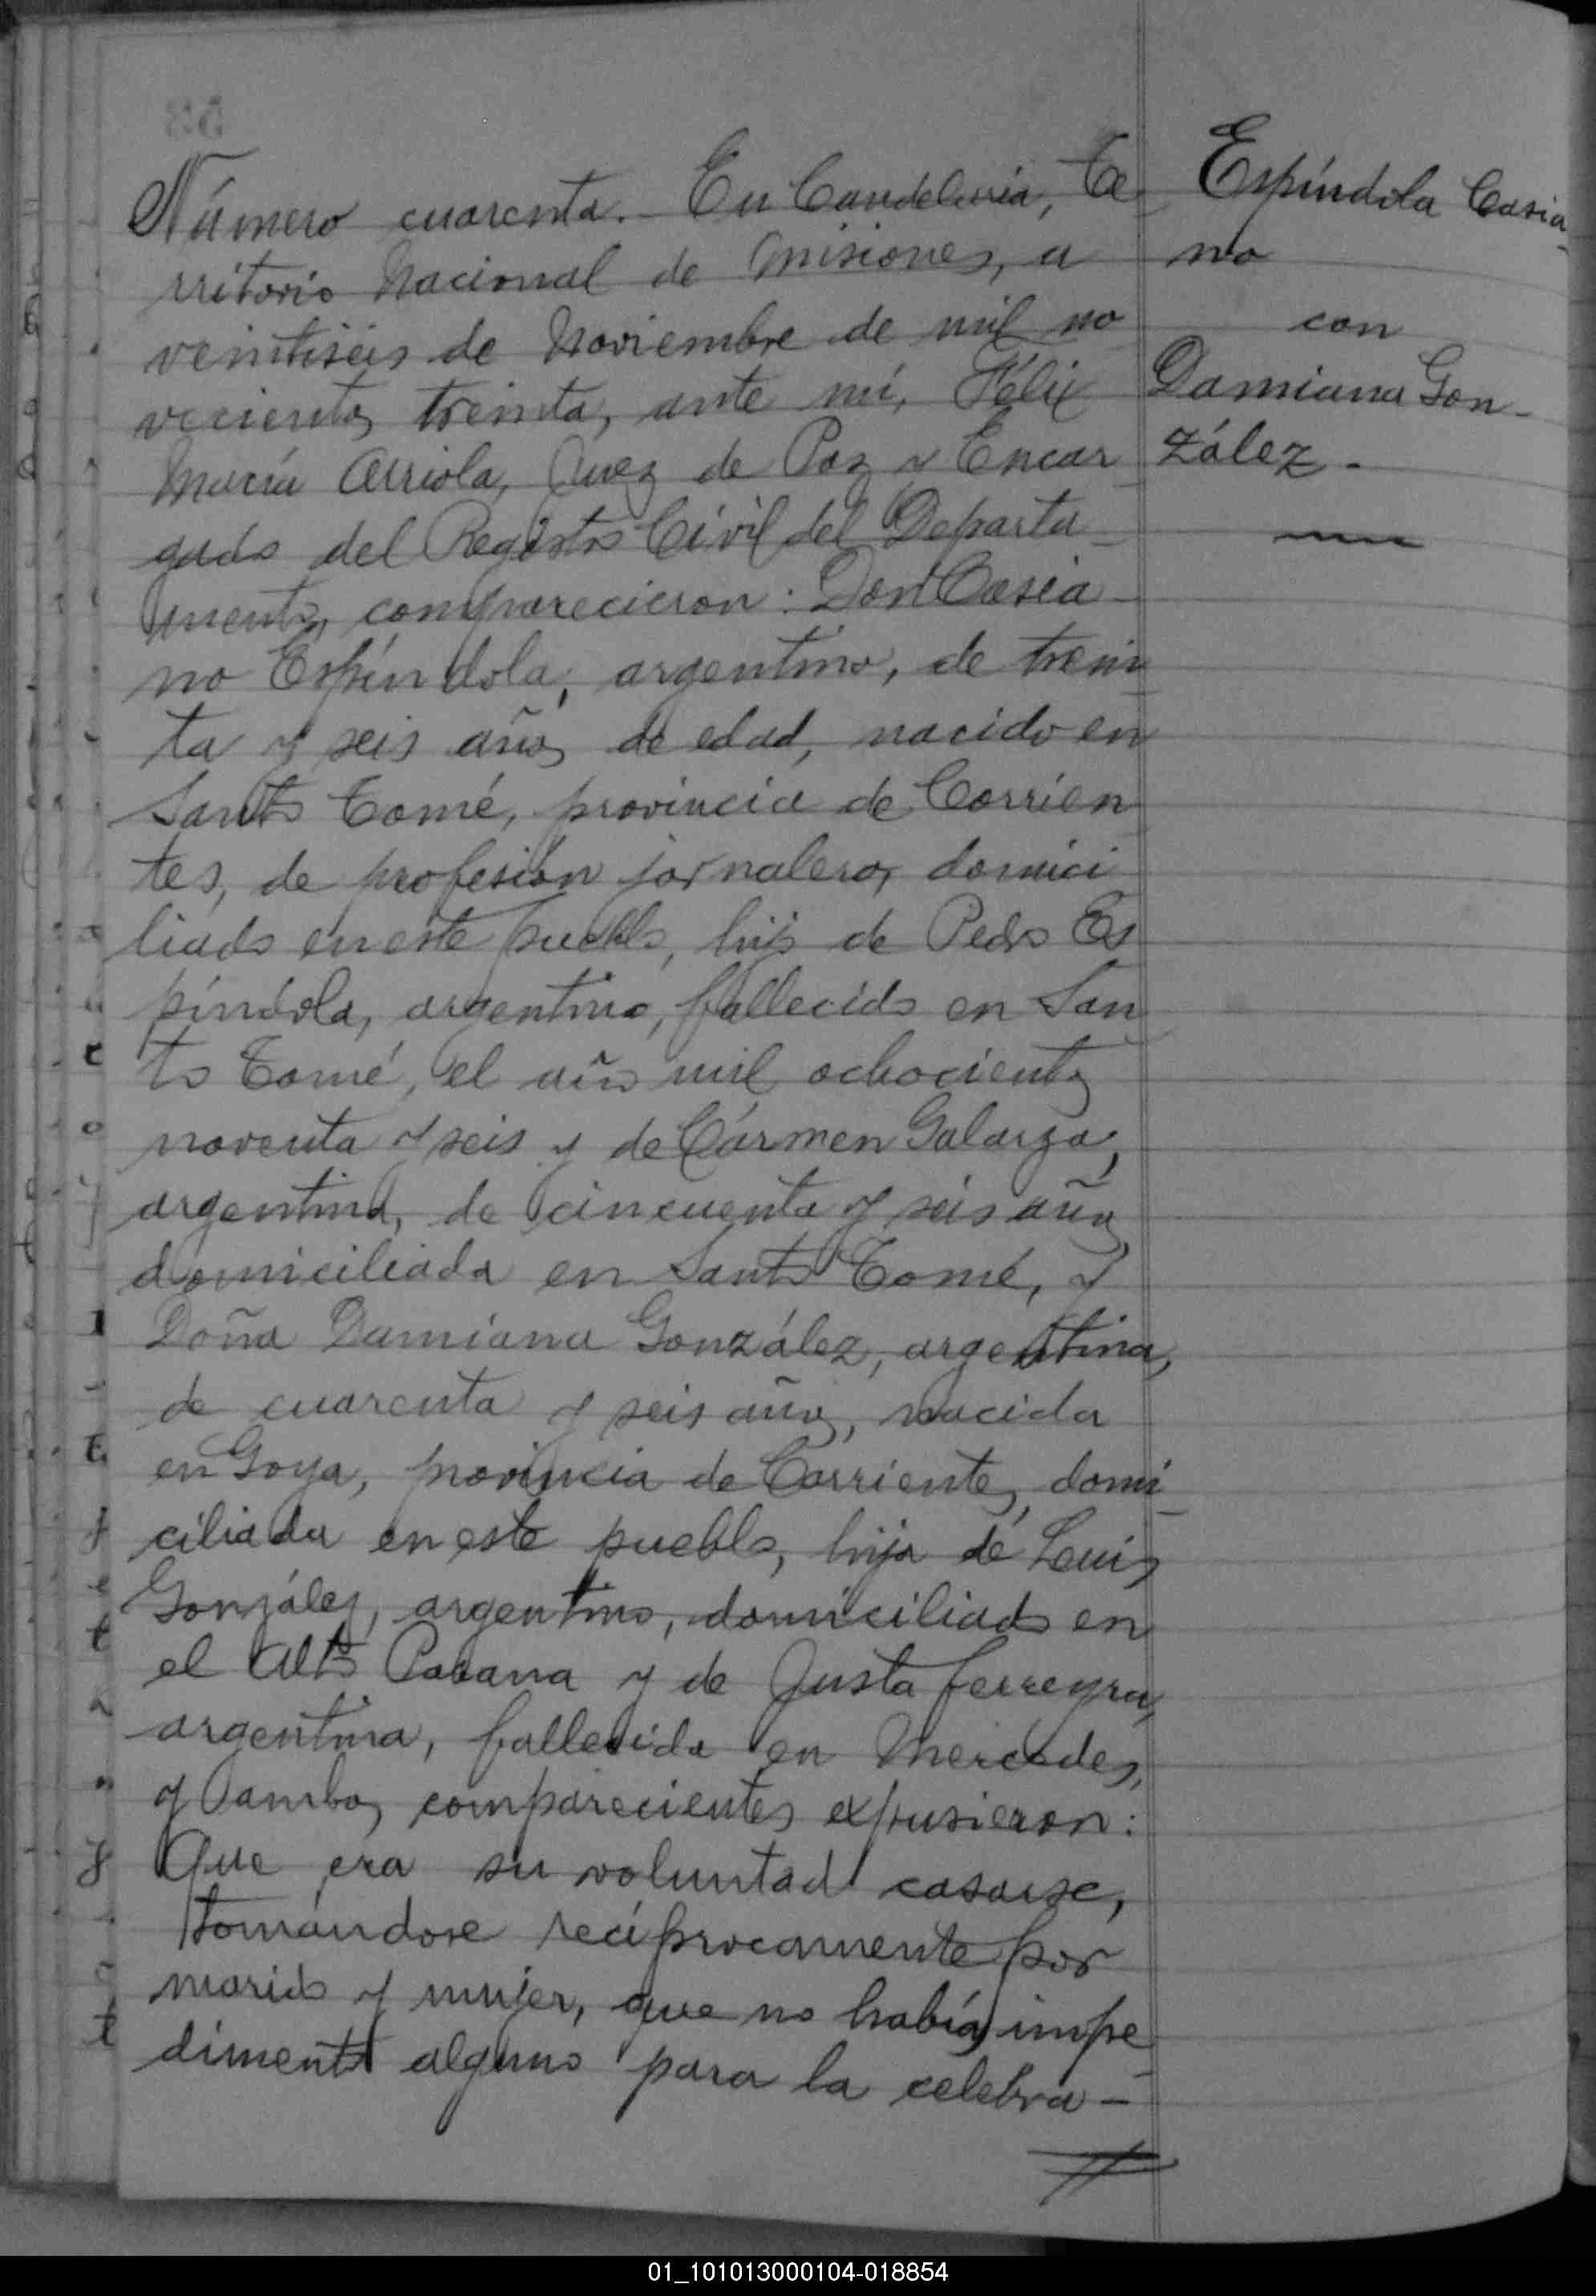 Número cuarenta. En Candelaria, Te
rritorio Nacional de Misiones, a
veintiseis de Noviembre de mil no
vecientos treinta, ante mí, Félix
María Arriola, Juez de Paz y Encar
gado del Registro Civil del Departa-
mento, comparecieron: Don Casia-
no Espíndola, argentino, de trein
ta y seis años de edad, nacido en
Santo Tomé, provincia de Corrien
tes, de profesión jornalero, domici
liado en este pueblo, hijo de Pedro Es
píndola, argentino, fallecido en San
to Tomé, el año mil ochocientos
noventa y seis y de Cármen Galarza,
argentina, de cincuenta y seis años,
domiciliada en Santo Tomé, y
Doña Damiana González, argentina,
de cuarenta y seis años, nacida
en Goya, provincia de Corrientes, domi-
ciliada en este pueblo, hija de Luis
González, argentino, domiciliado en
el Alto Parana y de Justa Ferreyra,
argentina, fallecida en Mercedes,
y ambos comparecientes expusieron:
Que era su voluntad casarse,
tomándose recíprocamente por
marido y mujer, que no había impe
dimento alguno para la celebra-
Espíndola Casia-
no
con
Damiana Gon-
zález.-
01_101013000104-018854